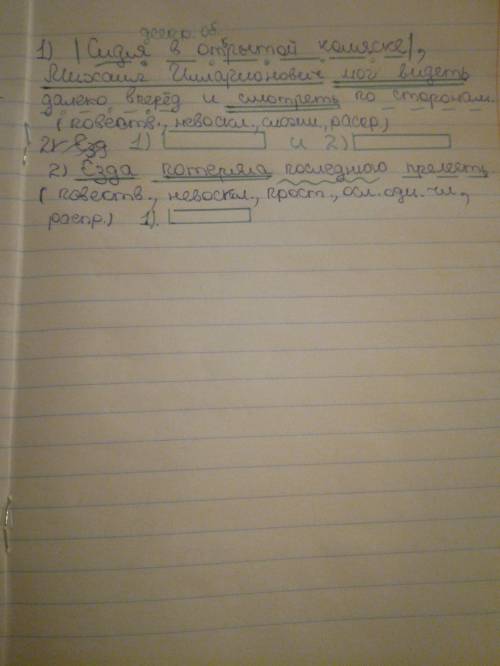 деепр. об.
1) |Сидя в открытой коляске|,
Михаил Илларионович мог видеть
далеко вперёд и смотреть по сторонам.
(повеств., невоскл., сложн., распр.)
2) Езд 1) и 2)
2) Езда потеряла последнюю прелесть.
(повеств., невоскл., прост., осл. одн. чл.,
распр.) 1).